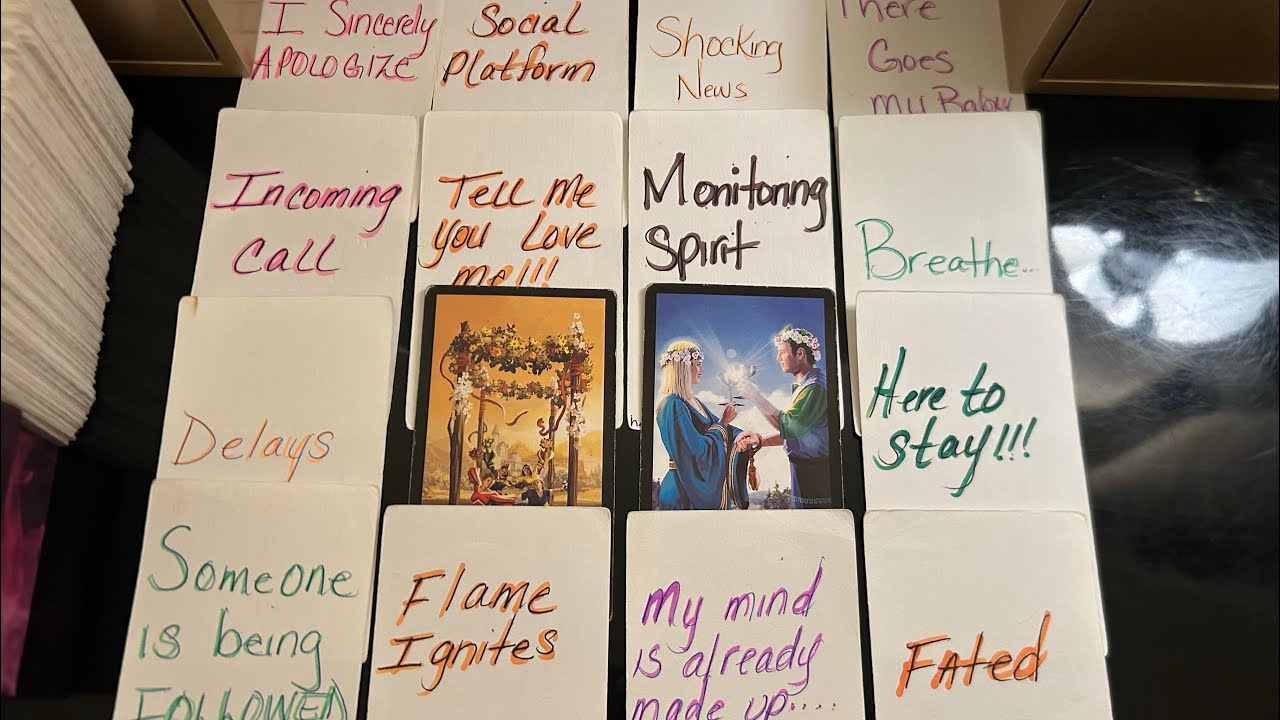 I Sincerely
APOLOGIZE
Social
Platform
Shocking
News
There
Goes
my Baby
Incoming
Call
Tell me
you Love
me!!!
Monitoring
Spirit
Breathe...
Delays
Here to
stay!!!
Someone
is being
FOLLOWED
Flame
Ignites
My mind
is already
made up....
Fated